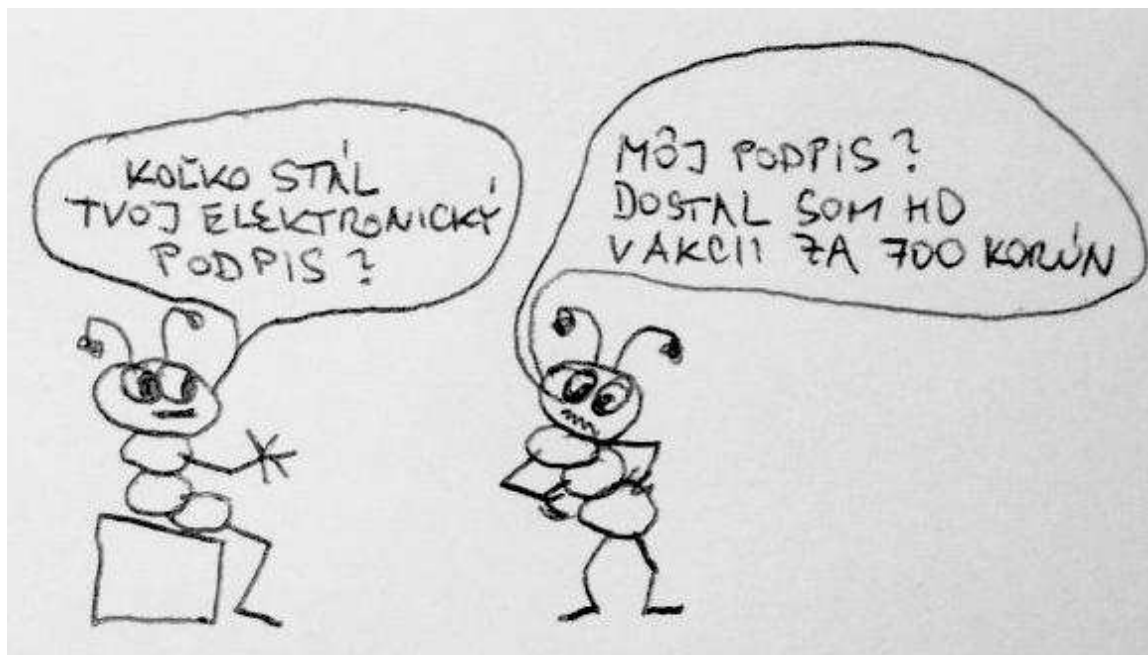 KOĽKO STÁL
TVOJ ELEKTRONICKÝ
PODPIS?
MÔJ PODPIS?
DOSTAL SOM HO
V AKCII ZA 700 KORÚN